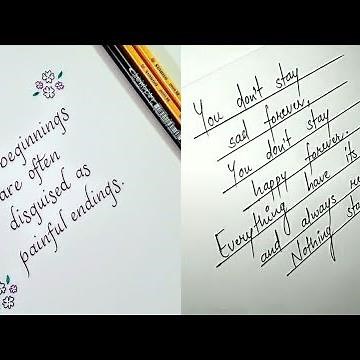 beginnings
are often
disguised as
painful endings.
You don't stay
sad forever,
You don't stay
happy forever.
Everything have its
and always
Nothing